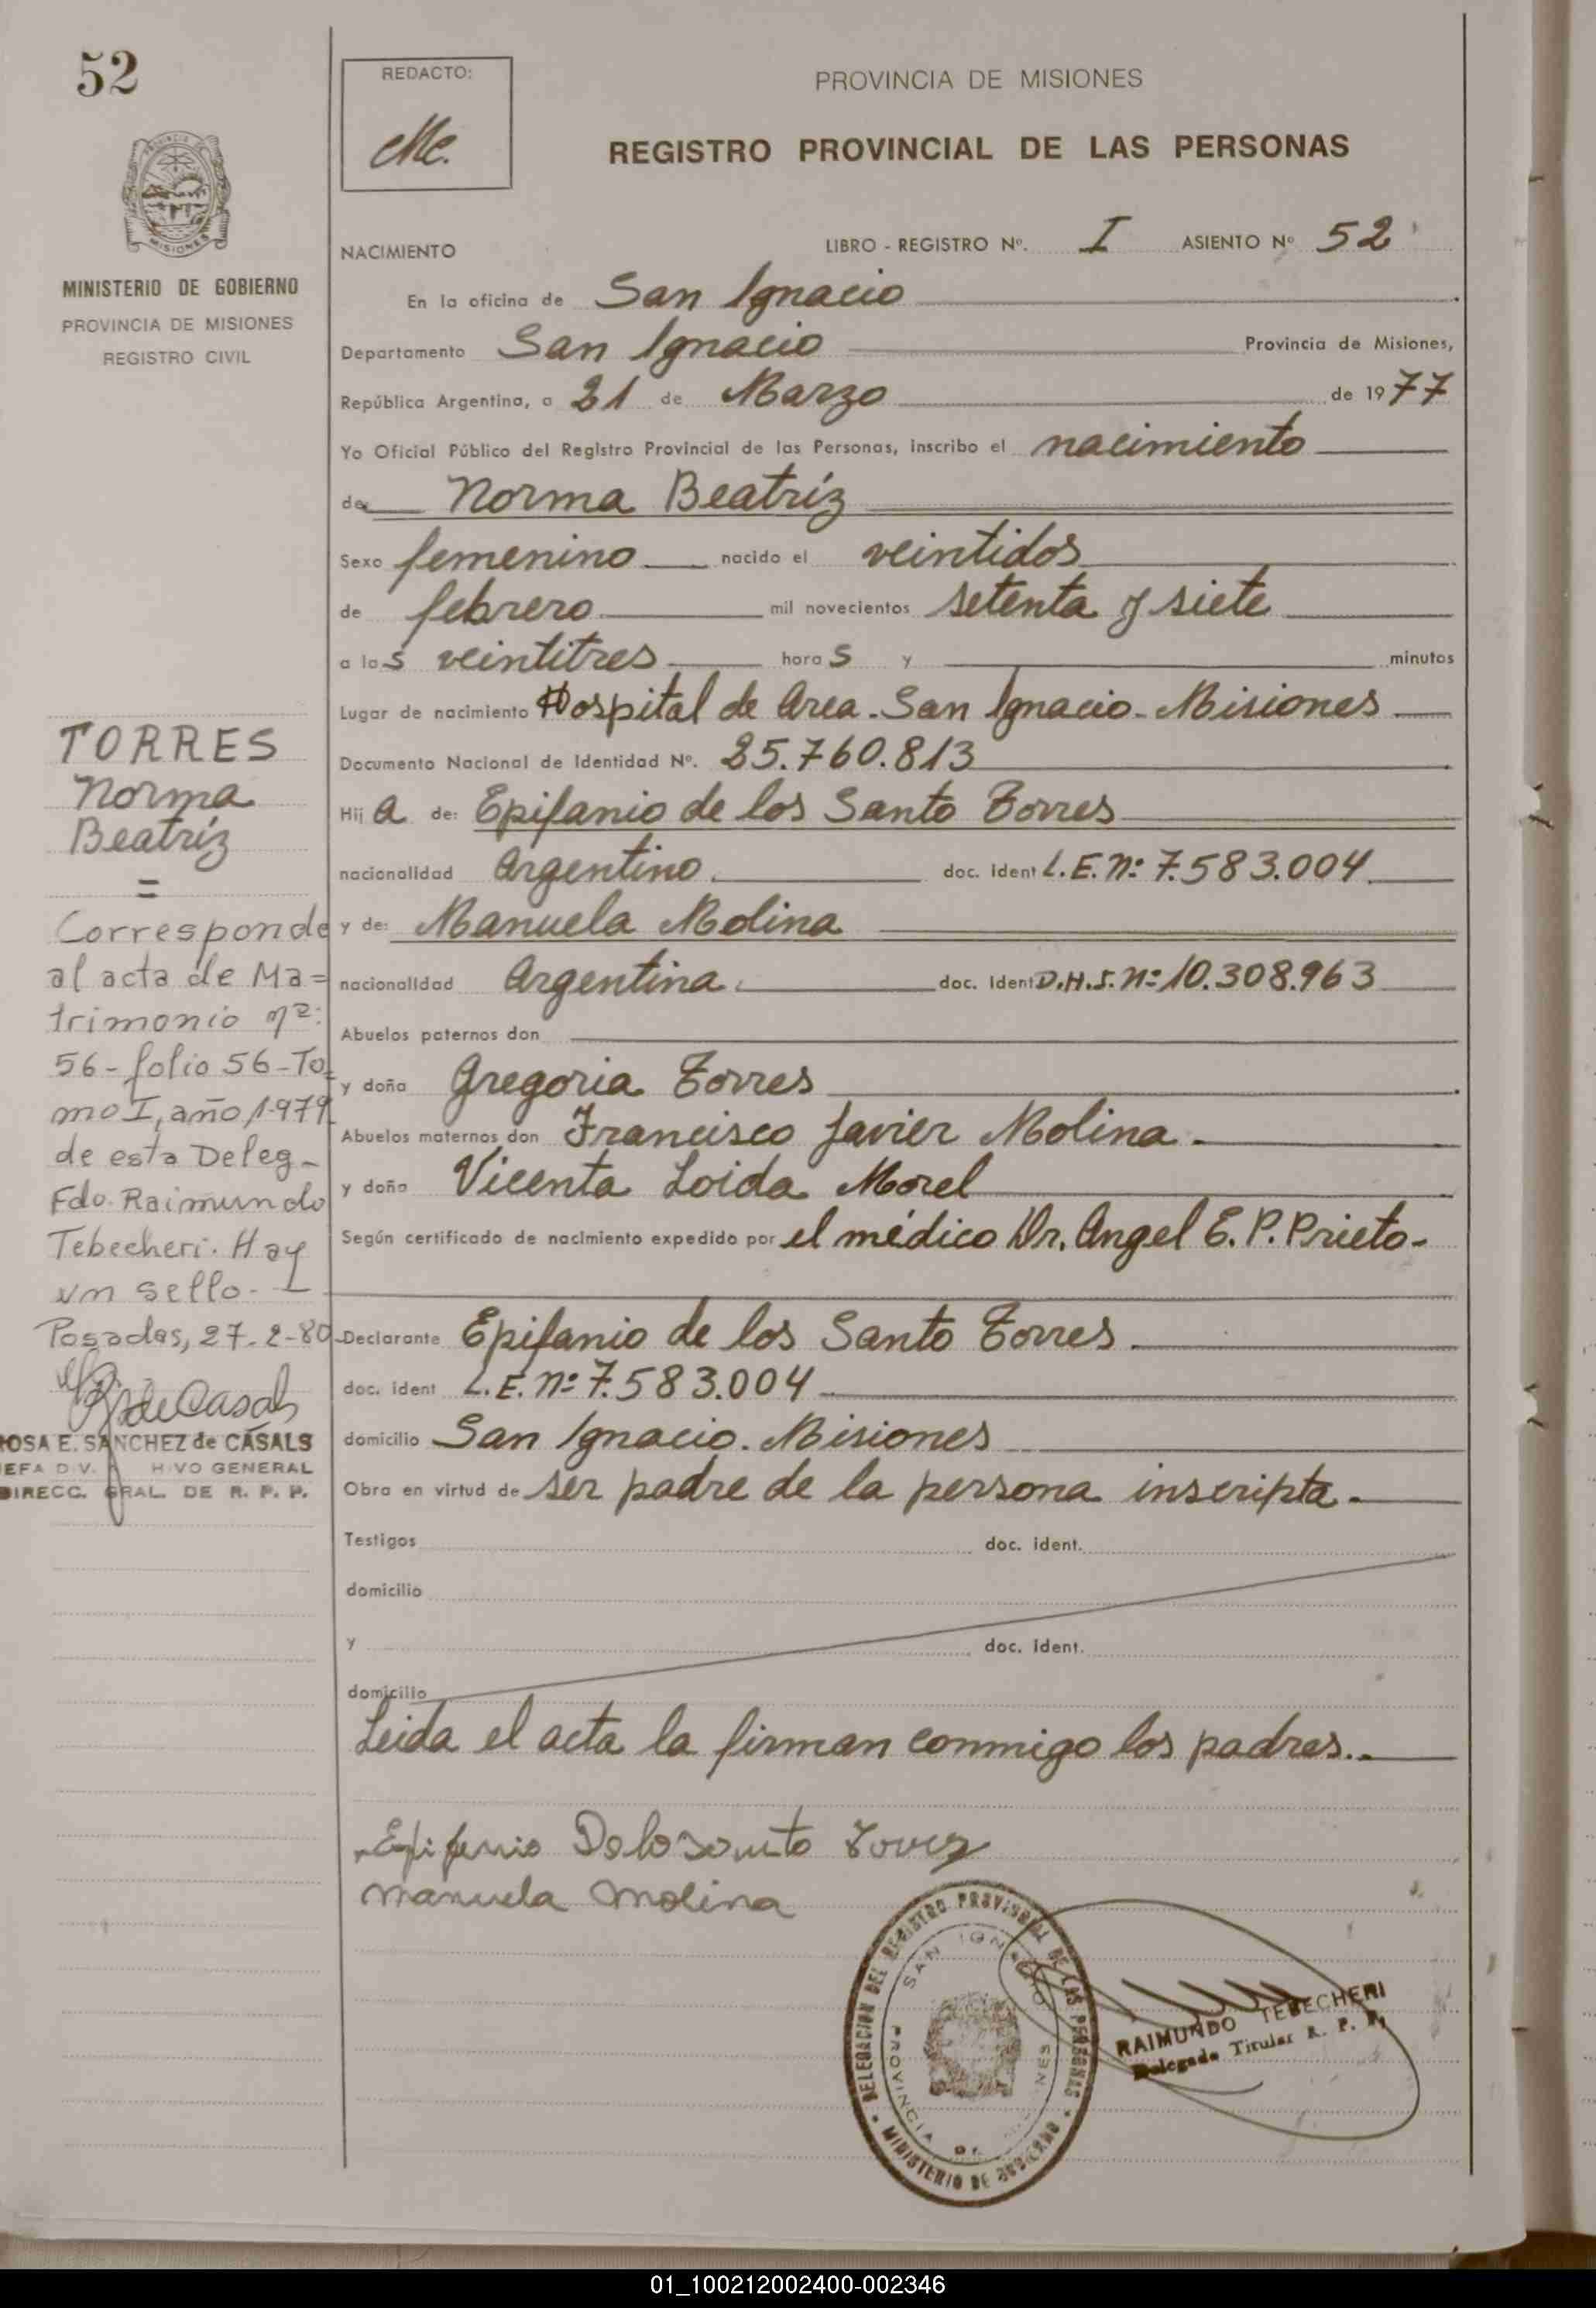 52
REDACTO:
Me.
PROVINCIA DE MISIONES
REGISTRO PROVINCIAL DE LAS PERSONAS
PROVINCIA DE
MISIONES
MINISTERIO DE GOBIERNO
PROVINCIA DE MISIONES
REGISTRO CIVIL
NACIMIENTO LIBRO - REGISTRO Nº. I ASIENTO Nº 52
En la oficina de San Ignacio
Departamento San Ignacio Provincia de Misiones,
República Argentina, a 21 de Marzo de 1977
Yo Oficial Público del Registro Provincial de las Personas, inscribo el nacimiento
de Norma Beatríz
Sexo femenino nacido el veintidos
de febrero mil novecientos setenta y siete
a las veintitres horas y minutos
Lugar de nacimiento Hospital de Area. San Ignacio. Misiones
Documento Nacional de Identidad Nº. 25.760.813
Hij a de: Epifanio de los Santo Torres
nacionalidad Argentino. doc. ident L.E. nº 7.583.004
y de: Manuela Molina
nacionalidad Argentina. doc. ident D.H.S. nº 10.308.963
Abuelos paternos don
y doña Gregoria Torres
Abuelos maternos don Francisco Javier Molina.
y doña Vicenta Loida Morel
Según certificado de nacimiento expedido por el médico Dr. Angel E. P. Prieto-
Declarante Epifanio de los Santo Torres.
doc. ident L.E. nº 7.583.004
domicilio San Ignacio. Misiones
Obra en virtud de ser padre de la persona inscripta.
Testigos doc. ident.
domicilio
y doc. ident.
domicilio
Leida el acta la firman conmigo los padres..
Epifanio Delosanto Torrez
Manuela Molina
TORRES
Norma
Beatríz
=
Corresponde
al acta de Ma=
trimonio nº:
56-folio 56-To
mo I, año 1979
de esta Deleg-
Fdo. Raimundo
Tebecheri. Hay
un sello.-
Posadas, 27-2-80
RdeCasals
ROSA E. SANCHEZ de CASALS
JEFA DIV. ARCHIVO GENERAL
DIRECC. GRAL. DE R. P. P.
DELEGACION DEL REGISTRO PROVINCIAL DE LAS PERSONAS
SAN IGNACIO
PROVINCIA DE MISIONES
MINISTERIO DE GOBIERNO
RAIMUNDO TEBECHERI
Delegado Titular R. P. P.
01_100212002400-002346